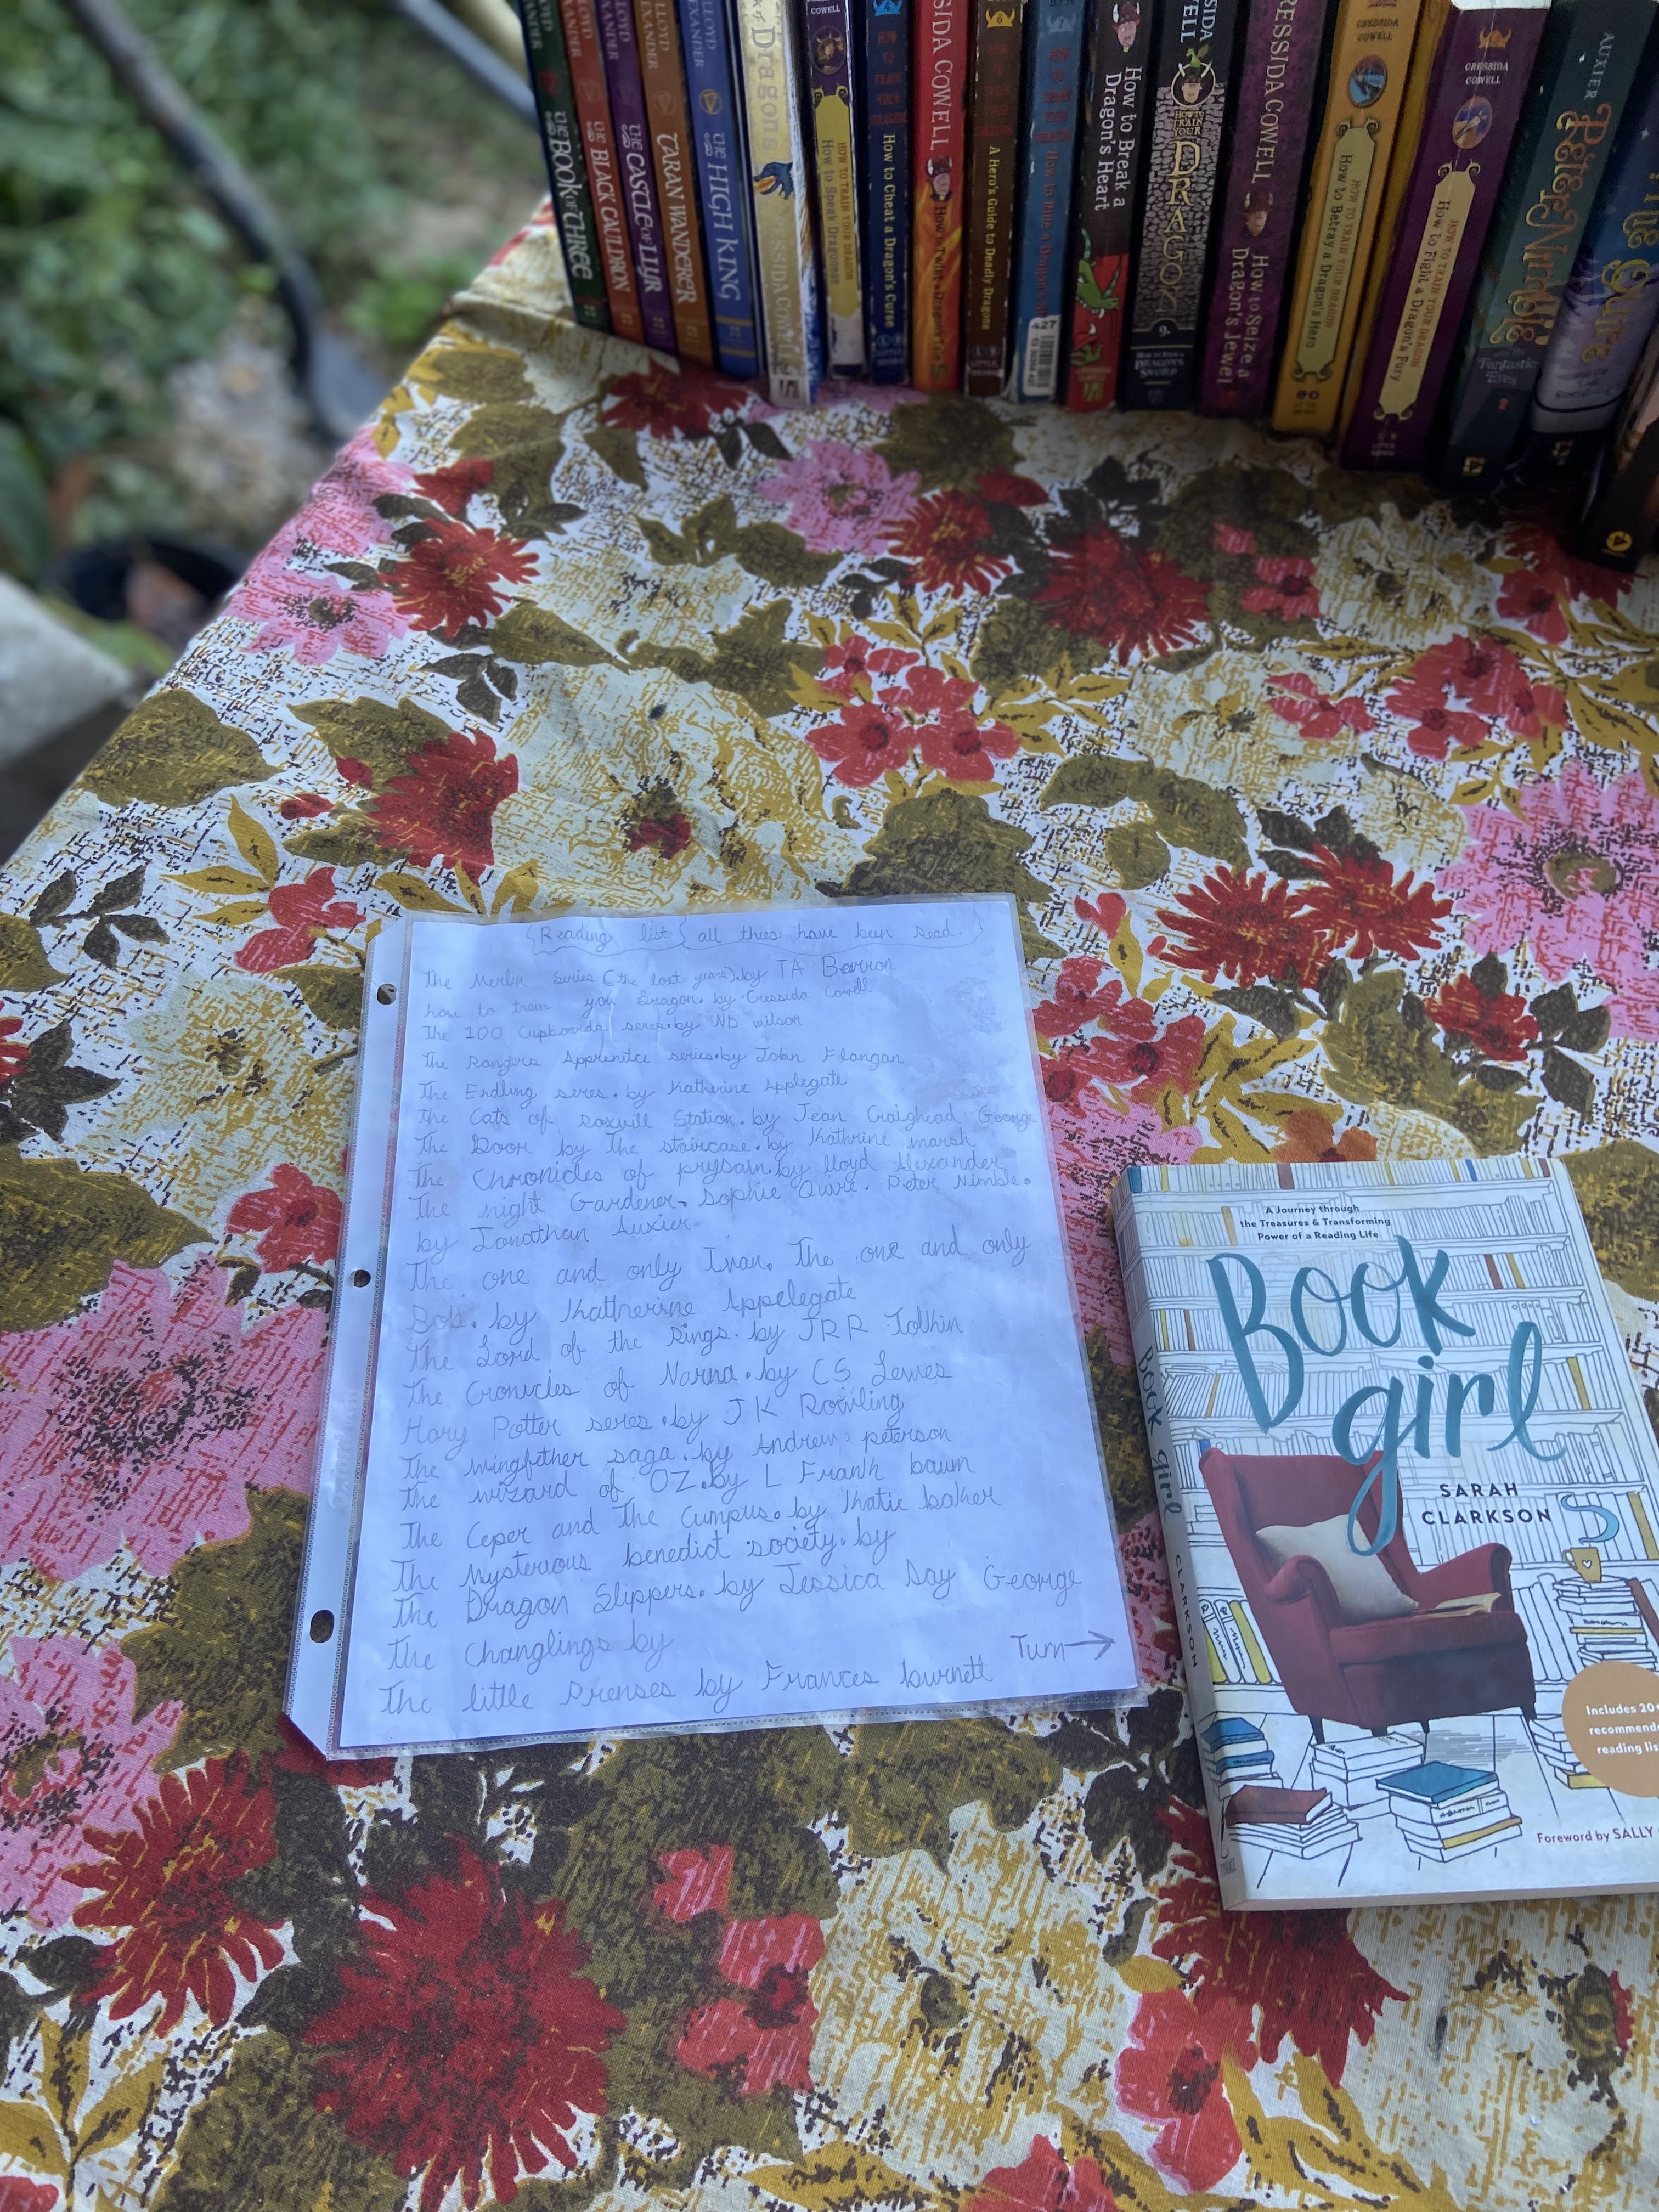 LLOYD ALEXANDER
THE BOOK OF THREE
THE BLACK CAULDRON
THE CASTLE OF LLYR
LLOYD ALEXANDER
TARAN WANDERER
LLOYD ALEXANDER
THE HIGH KING
of Dragons
CRESSIDA COWELL
COWELL
HOW TO TRAIN YOUR DRAGON
How to Speak Dragonese
HOW TO TRAIN YOUR DRAGON
How to Cheat a Dragon's Curse
SIDA COWELL
How to Twist a Dragon's
6
A Hero's Guide to Deadly Dragons
7
How to Ride a Dragon's
427
How to Break a
Dragon's Heart
SIDA
ELL
HOW TO
TRAIN
YOUR
DRAGON
9
HOW TO STEAL A
DRAGON'S
SWORD
RESSIDA COWELL
How to Seize a
Dragon's Jewel
CRESSIDA
COWELL
HOW TO TRAIN YOUR DRAGON
How to Betray a Dragon's Hero
CRESSIDA
COWELL
HOW TO TRAIN YOUR DRAGON
How to Fight a Dragon's Fury
AUXIER
Peter Nimble
Fantastic
Eyes
Reading list all thees have been read.
The Merlin series (the lost years). by TA Berron
how to train you Dragon. by Cressida Cowell
The 100 Cupboards seres. by ND wilson
The Rangers Apprenitce series. by John Flangan
The Endling seres. by Katherine Applegate
the Cats of Roxvill Station. by Jean Craighead George
The Door by The staircase. by Kathrine marsh
The Chronicles of prysain. by lloyd Alexander
The night Gardener. Sophie Quire. Peter Nimble.
by Jonathan Auxier
The one and only Ivan. The one and only
Bob. by Katherine Appelegate
The Lord of the Rings. by JRR Tolkin
The Cronicles of Narna. by CS Lewes
Hary Potter seres. by J K Rowling
The wingfether saga. by Andrew peterson
The wizard of OZ. by L Frank baum
The Ceper and The Cumpus. by Katie baker
The Mysterious benedict society. by
The Dragon Slippers. by Jessica Day George
The Changlings by
Turn →
The little Prenses by Frances burnett
A Journey through
the Treasures & Transforming
Power of a Reading Life
Book
girl
SARAH
CLARKSON
Includes 20+
recommende
reading lis
Foreword by SALLY
Book girl
CLARKSON